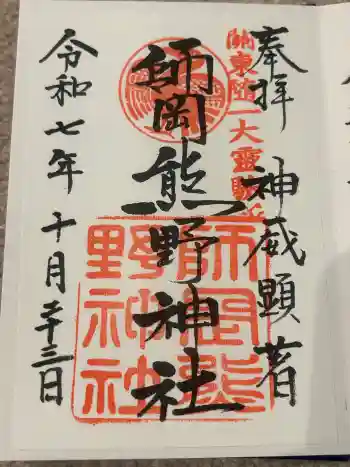 奉拝
神威顕著
關東随一大靈驗所
師岡熊野神社
師岡熊
野神社
令和七年十月二十三日